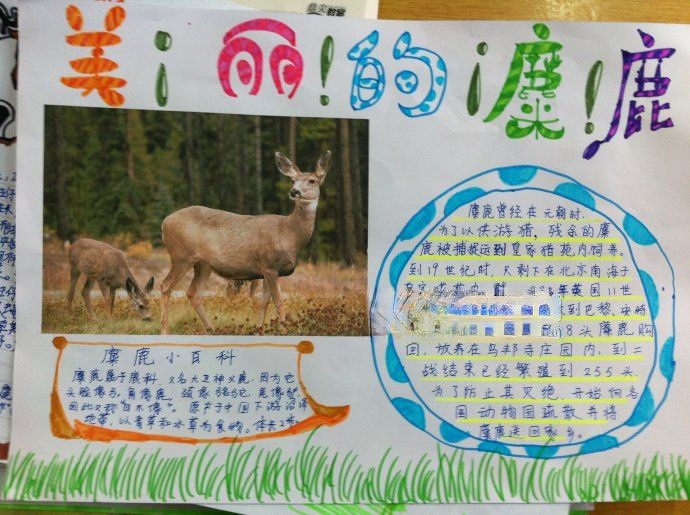 美丽的麋鹿
麋鹿小百科
麋鹿属于鹿科，又名大卫神父鹿，因为它
头脸像马，角像鹿，颈像骆驼，尾像驴
因此又称"四不像"。原产于中国下游沼泽
地带，以青草和水草为食物。体长2米
麋鹿曾经在元朝时，
为了以供游猎，残余的麋
鹿被捕捉运到皇家猎苑内饲养。
到19世纪时，只剩下在北京南海子
年英国11世
到巴黎，
18头麋鹿购
回，放养在乌邦寺庄园内，到二
战结束已经繁殖到255头，
为了防止其灭绝，开始向各
国动物园疏散并将
麋鹿送回家乡。